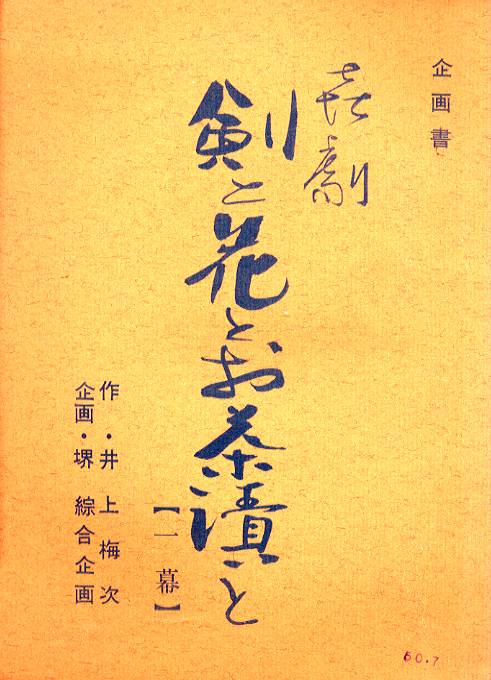 企画書
喜劇
剣と花とお茶漬と
【一幕】
作・井上梅次
企画・堺綜合企画
60.7